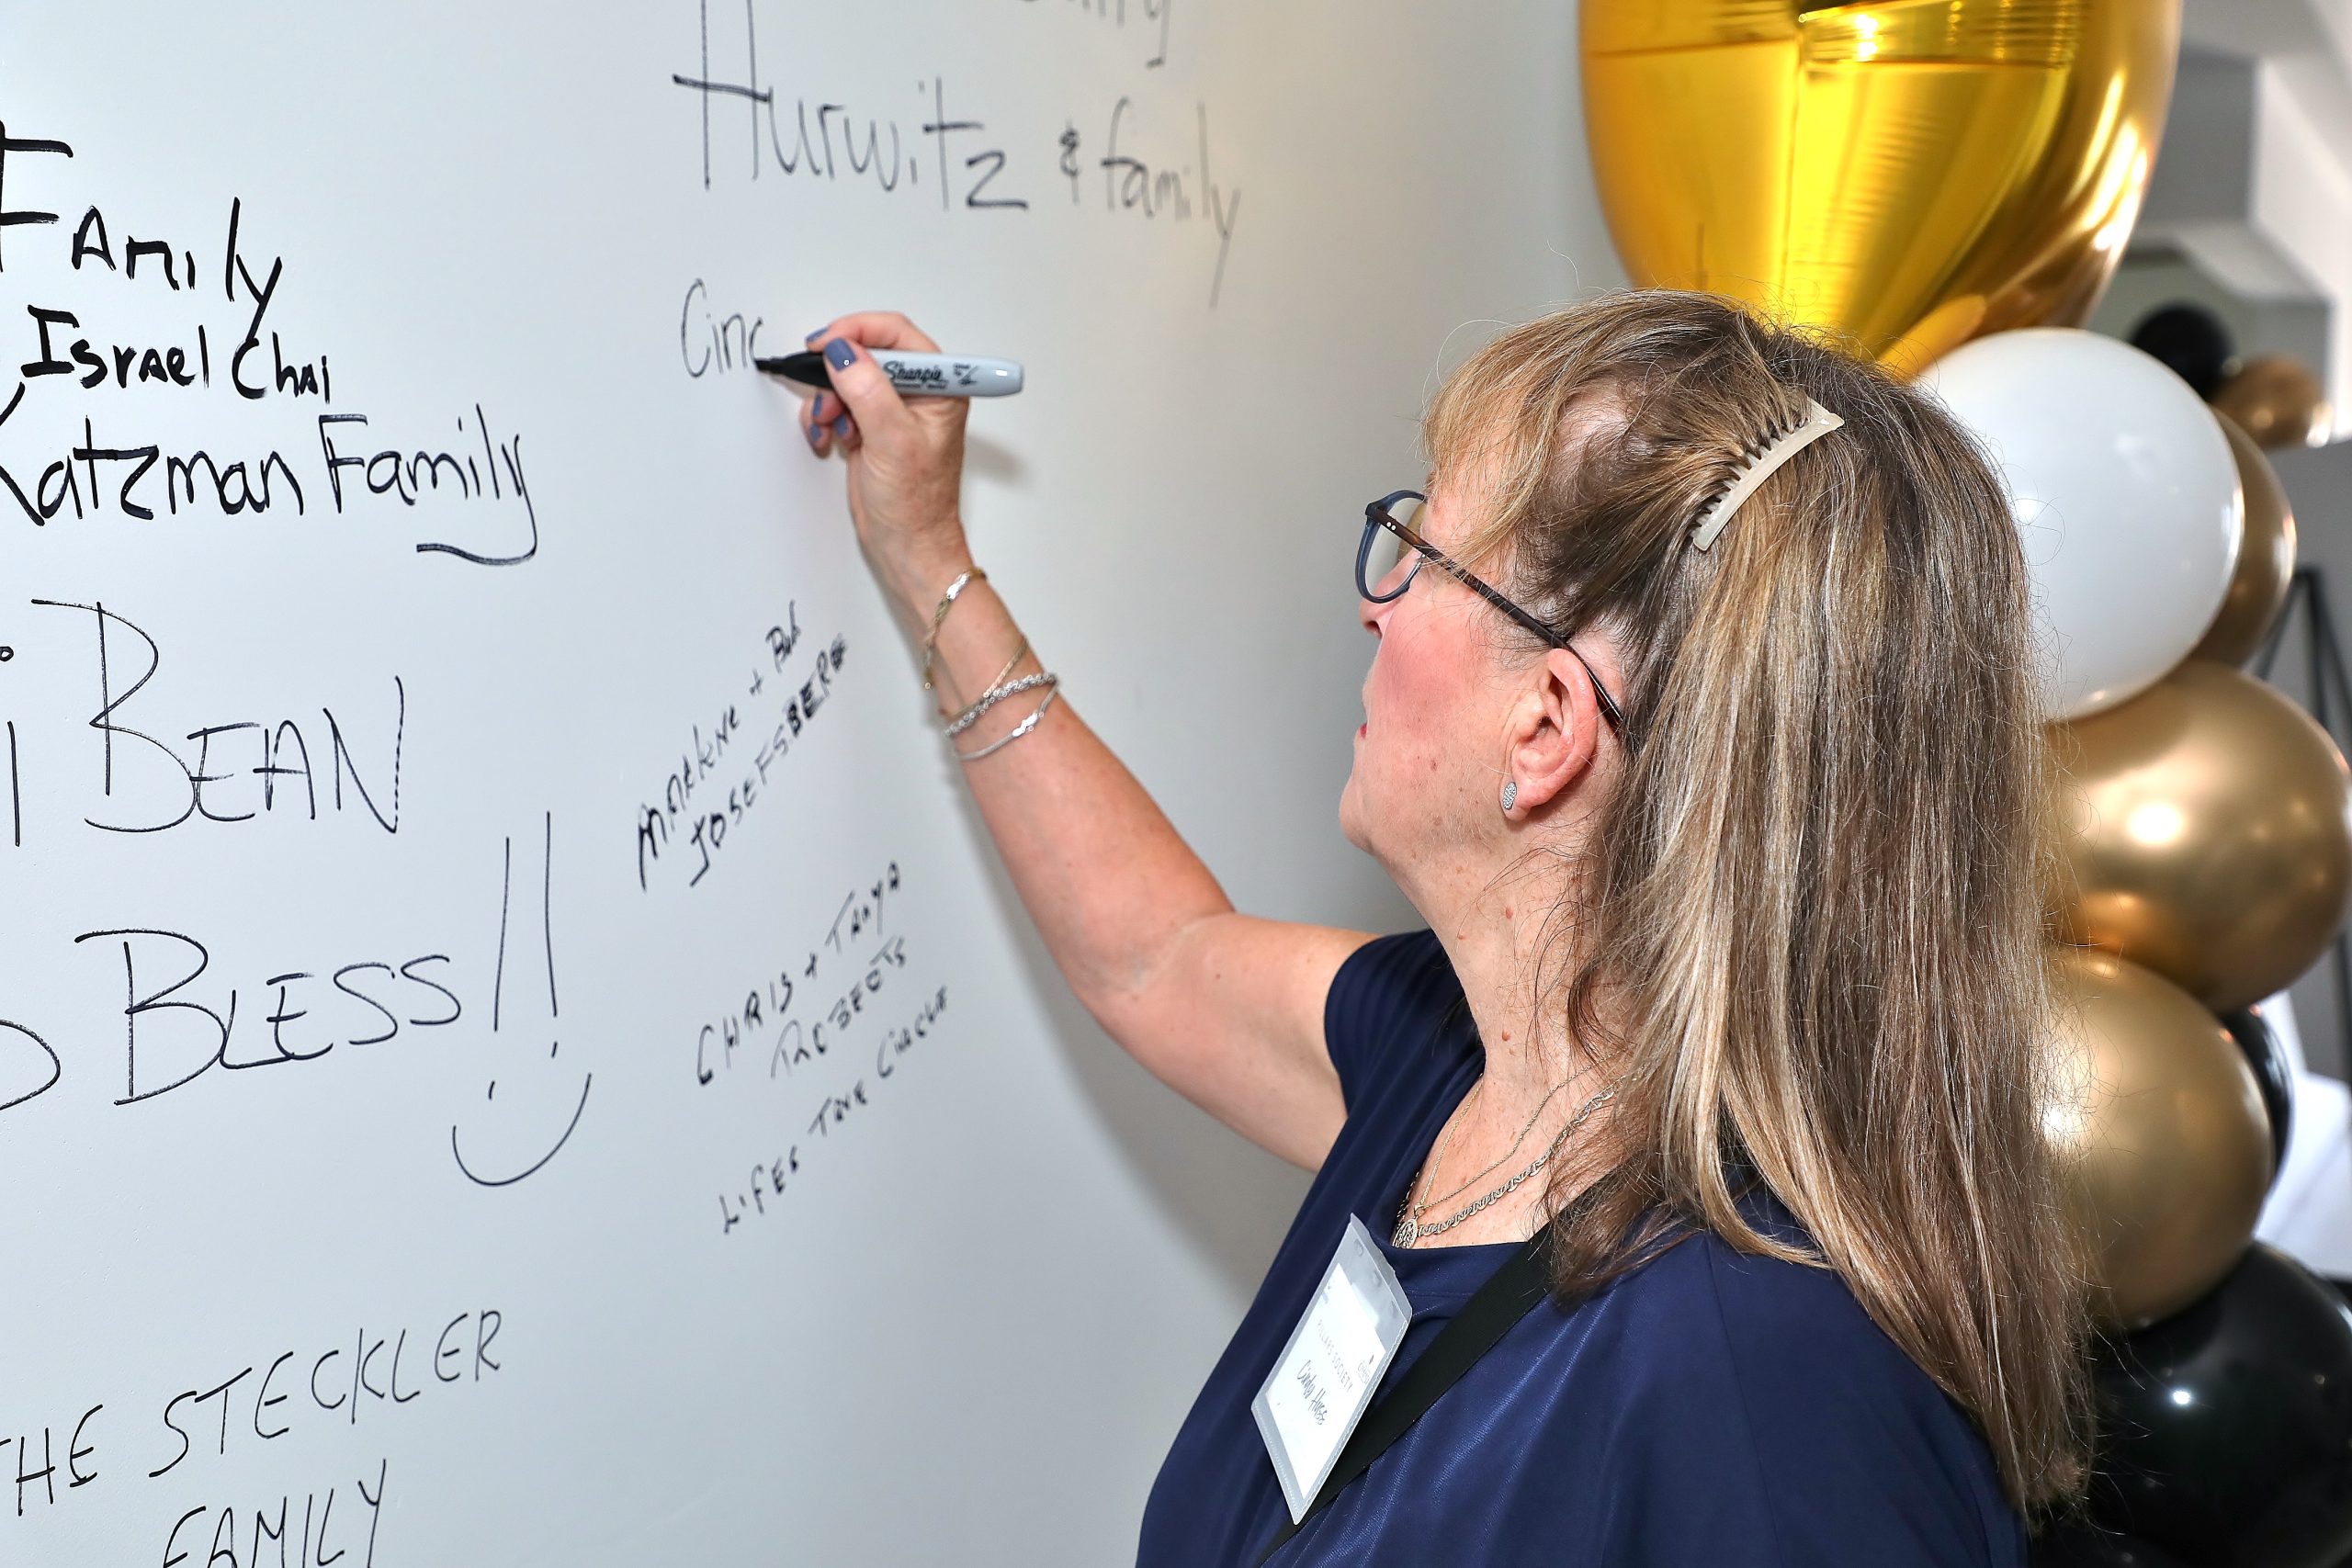 Hurwitz & family
Cinc
FAmily
Israel Chai
Katzman Family
BEAN
BLESS!!
THE STECKLER
FAMILY
JOSEFSBERG
CHRIS + TANYA
ROBERTS
LIFES TRUE CIRCLE
Sharpie
PILLARS SOCIETY
Cindy